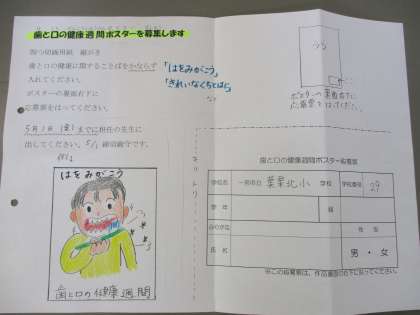 歯と口の健康週間ポスターを募集します
四つ切画用紙 縦がき
歯と口の健康に関することばをかならず
入れてください。
ポスターの裏面右下に
応募票をはってください。
「はをみがこう」
「きれいなくちとは」
など
5月1日(金)までに担任の先生に
出してください。5/1 締切厳守です。
例は
はをみがこう
歯と口の健康週間
うら
ポスターの裏面右下に
応募票をはってください。
キリトリ
歯と口の健康週間ポスター応募票
学校名
一宮市立
葉栗北小
学校
学校番号
29
学年
組
ふりがな
性別
氏名
男・女
※この応募票は、作品裏面の右下に貼ってください。